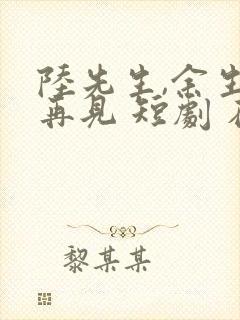 陸先生,余生
再見 短劇
黎某某